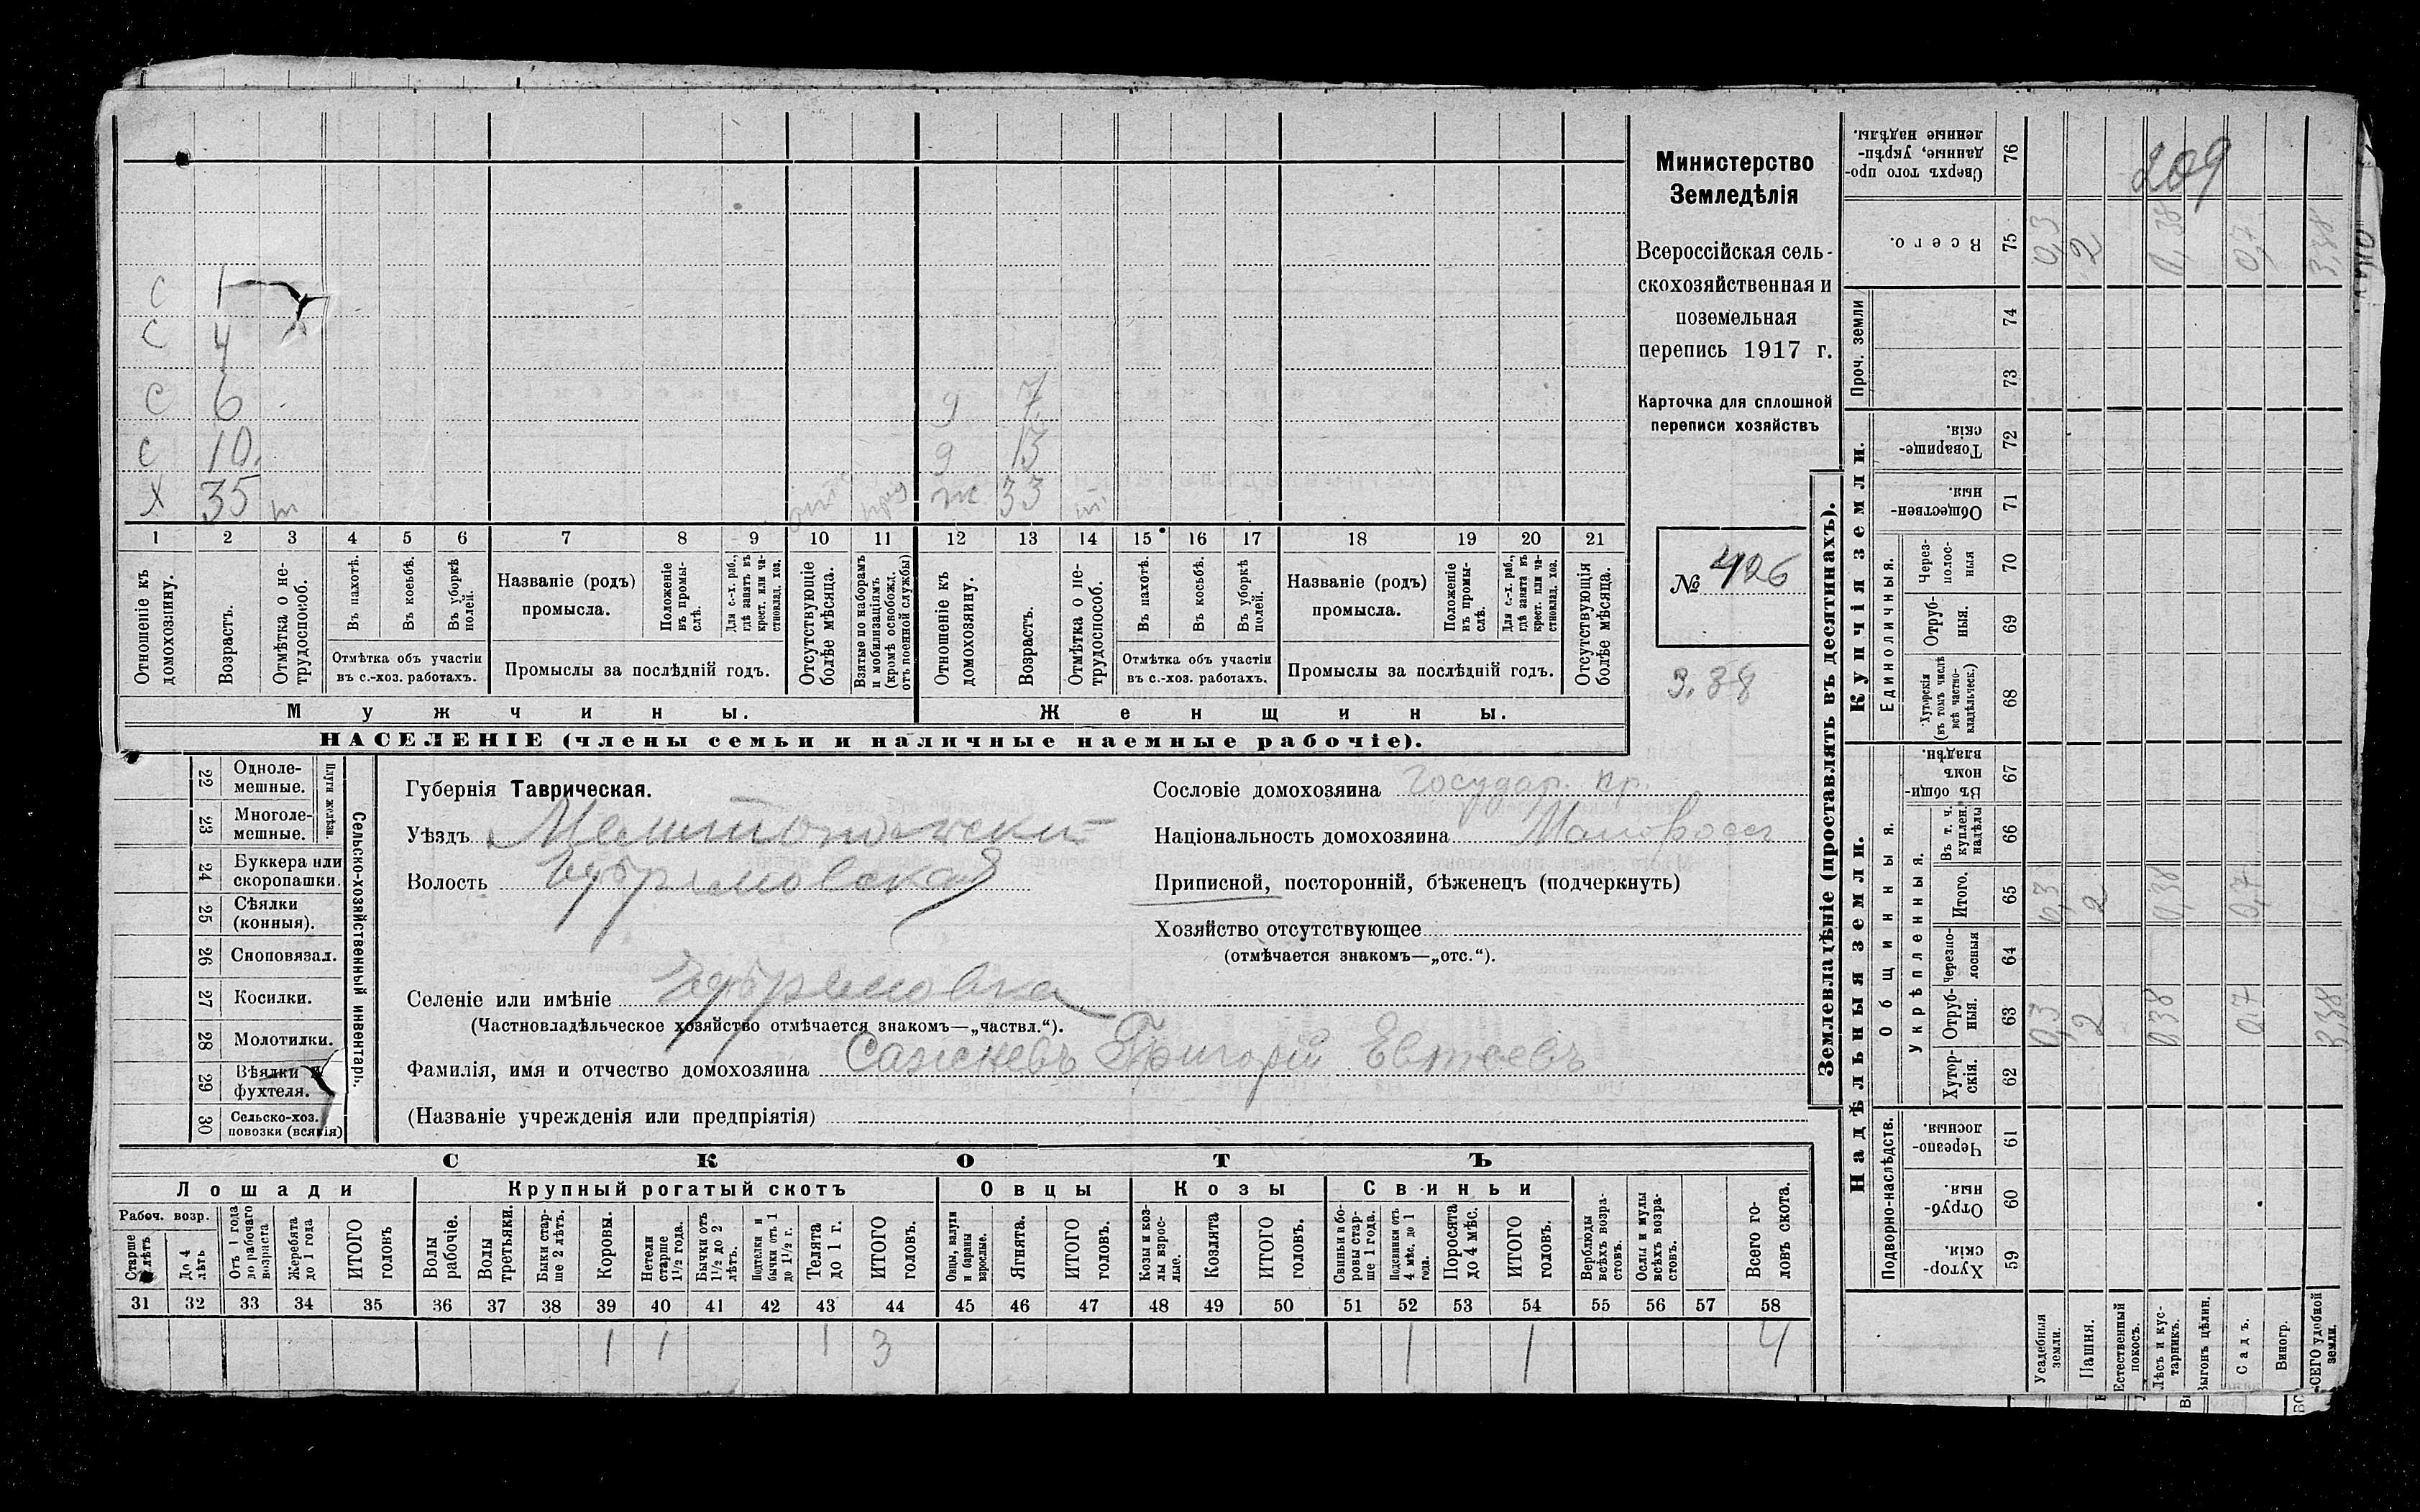 209
Министерство
Земледѣлія
Всероссійская сель-
скохозяйственная и
поземельная
перепись 1917 г.
Карточка для сплошной
переписи хозяйствъ
№ 426
3.38
с 1
с 4
с 6 9 7
с 10. 9 13
х 35 т ж 33 т
1 2 3 4 5 6 7 8 9 10 11 12 13 14 15 16 17 18 19 20 21
Отношеніе къ домохозяину.
Возрастъ.
Отмѣтка о не-трудоспособ.
Въ пахотѣ.
Въ косьбѣ.
Въ уборкѣ полей.
Отмѣтка объ участіи
въ с.-хоз. работахъ.
Названіе (родъ)
промысла.
Положеніе въ промы-слѣ.
Для с.-х. раб., гдѣ занятъ въ крест. или ча-стновлад. хоз.
Промыслы за послѣдній годъ.
Отсутствующіе болѣе мѣсяца.
Взятые по наборамъ и мобилизаціямъ (кромѣ освобожд. отъ военной службы)
Отношеніе къ домохозяину.
Возрастъ.
Отмѣтка о не-трудоспособ.
Въ пахотѣ.
Въ косьбѣ.
Въ уборкѣ полей.
Отмѣтка объ участіи
въ с.-хоз. работахъ.
Названіе (родъ)
промысла.
Положеніе въ промы-слѣ.
Для с.-х. раб., гдѣ занята въ крест. или ча-стновлад. хоз.
Промыслы за послѣдній годъ.
Отсутствующія болѣе мѣсяца.
Мужчины. Женщины.
НАСЕЛЕНІЕ (члены семьи и наличные наемные рабочіе).
Сельско-хозяйственный инвентарь.
Плуги желѣзн.
22 Одноле-мешные.
23 Многоле-мешные.
24 Буккера или скоропашки.
25 Сѣялки (конныя).
26 Сноповязал.
27 Косилки.
28 Молотилки.
29 Вѣялки и фухтеля.
30 Сельско-хоз. повозки (всякія)
Губернія Таврическая.
Уѣздъ Мелитопольскій
Волость Ефремовская
Селеніе или имѣніе Ефремовка
(Частновладѣльческое хозяйство отмѣчается знакомъ—„частвл.“).
Фамилія, имя и отчество домохозяина Григорій Евтеевъ
(Названіе учрежденія или предпріятія)
Сословіе домохозяина государ. кр.
Національность домохозяина Малоросъ
Приписной, посторонній, бѣженецъ (подчеркнуть)
Хозяйство отсутствующее
(отмѣчается знакомъ—„отс.“).
СКОТЪ
Лошади Крупный рогатый скотъ Овцы Козы Свиньи
Рабоч. возр.
Старше лѣтъ
До 4 лѣтъ
Отъ 1 года до рабочаго возраста
Жеребята до 1 года
ИТОГО головъ
Волы рабочіе.
Волы третьяки.
Быки стар-ше 2 лѣтъ.
Коровы.
Нетели старше 1½ года.
Бычки отъ 1½ до 2 лѣтъ.
Подтелки и бычки отъ 1 до 1½ г.
Телята до 1 г.
ИТОГО головъ.
Овцы, валухи и бараны взрослые.
Ягнята.
ИТОГО головъ.
Козы и коз-лы взрос-лые.
Козлята
ИТОГО головъ.
Свиньи и бо-ровы стар-ше 1 года.
Подсвинки отъ 4 мѣс. до 1 года.
Поросята до 4 мѣс.
ИТОГО головъ.
Верблюды всѣхъ возра-стовъ.
Ослы и мулы всѣхъ возра-стовъ.
Всего го-ловъ скота.
31 32 33 34 35 36 37 38 39 40 41 42 43 44 45 46 47 48 49 50 51 52 53 54 55 56 57 58
1 1 1 3 1 1 4
Землевладѣніе (проставлять въ десятинахъ).
Надѣльныя земли. Купчія земли. Проч. земли
Подворно-наслѣдств.
Общинныя.
Укрѣпленныя.
Единоличныя.
59 Хутор-скія.
60 Отруб-ныя.
61 Черезпо-лосныя.
62 Хутор-скія.
63 Отруб-ныя. 0,3 2 0,38 0,7 3,38
64 Черезпо-лосныя
65 Итого. 0,3 2 0,38 0,7
66 Въ т. ч. куплен. надѣлы
67 Въ общи-номъ владѣн.
68 Хуторскія (въ томъ числѣ всѣ частно-владѣльческ.)
69 Отруб-ныя.
70 Через-полос-ныя
71 Обществен-ныя.
72 Товарище-скія.
73
74
75 Всего. 0,3 2 0,38 0,7 3,38
76 Сверхъ того про-данные, укрѣп-ленные надѣлы.
Усадебныя земли.
Пашня.
Естественный покосъ.
Лѣсъ и кус-тарникъ.
Выгонъ цѣлин.
Садъ.
Виногр.
ВСЕГО удобной земли.